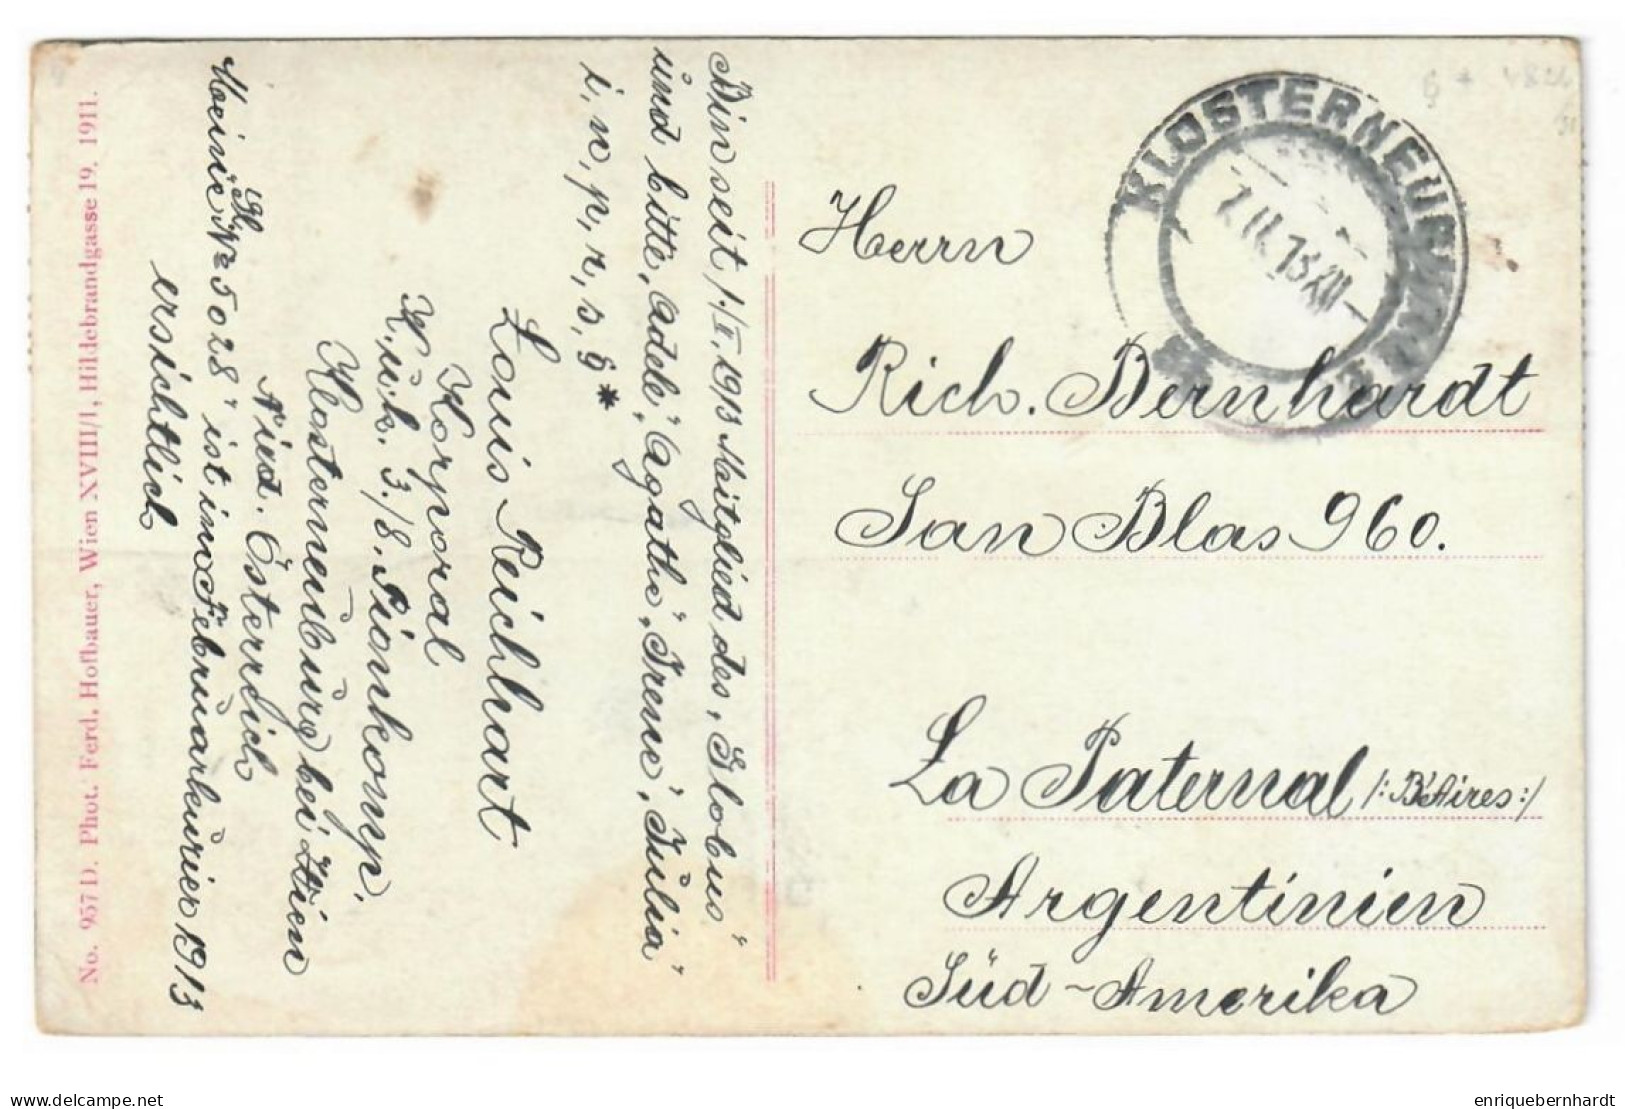 Bin seit 1./I. 1913 Mitglied des „Globus“
und bitte „Adele“, „Agathe“, „Irene“, „Julia“
i, n, p, r, s, § *
Louis Reichhart
Korporal
K. u. k. 3./8. Pionkomp.
Klosterneuburg bei Wien
Nied. Österreich
Meine „K. No 5028“ ist im Februarkurier 1913
ersichtlich
No. 957 D. Phot. Ferd. Hofbauer, Wien XVIII/1, Hildebrandgasse 19. 1911.
KLOSTERNEUBURG
Herrn
Rich. Bernhardt
San Blas 960.
La Paternal /: B'Aires :/
Argentinien
Süd-Amerika
enriquebernhardt